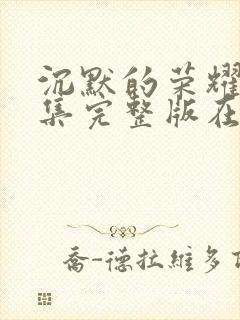 沉默的荣耀
集完整版在
乔-德拉維多